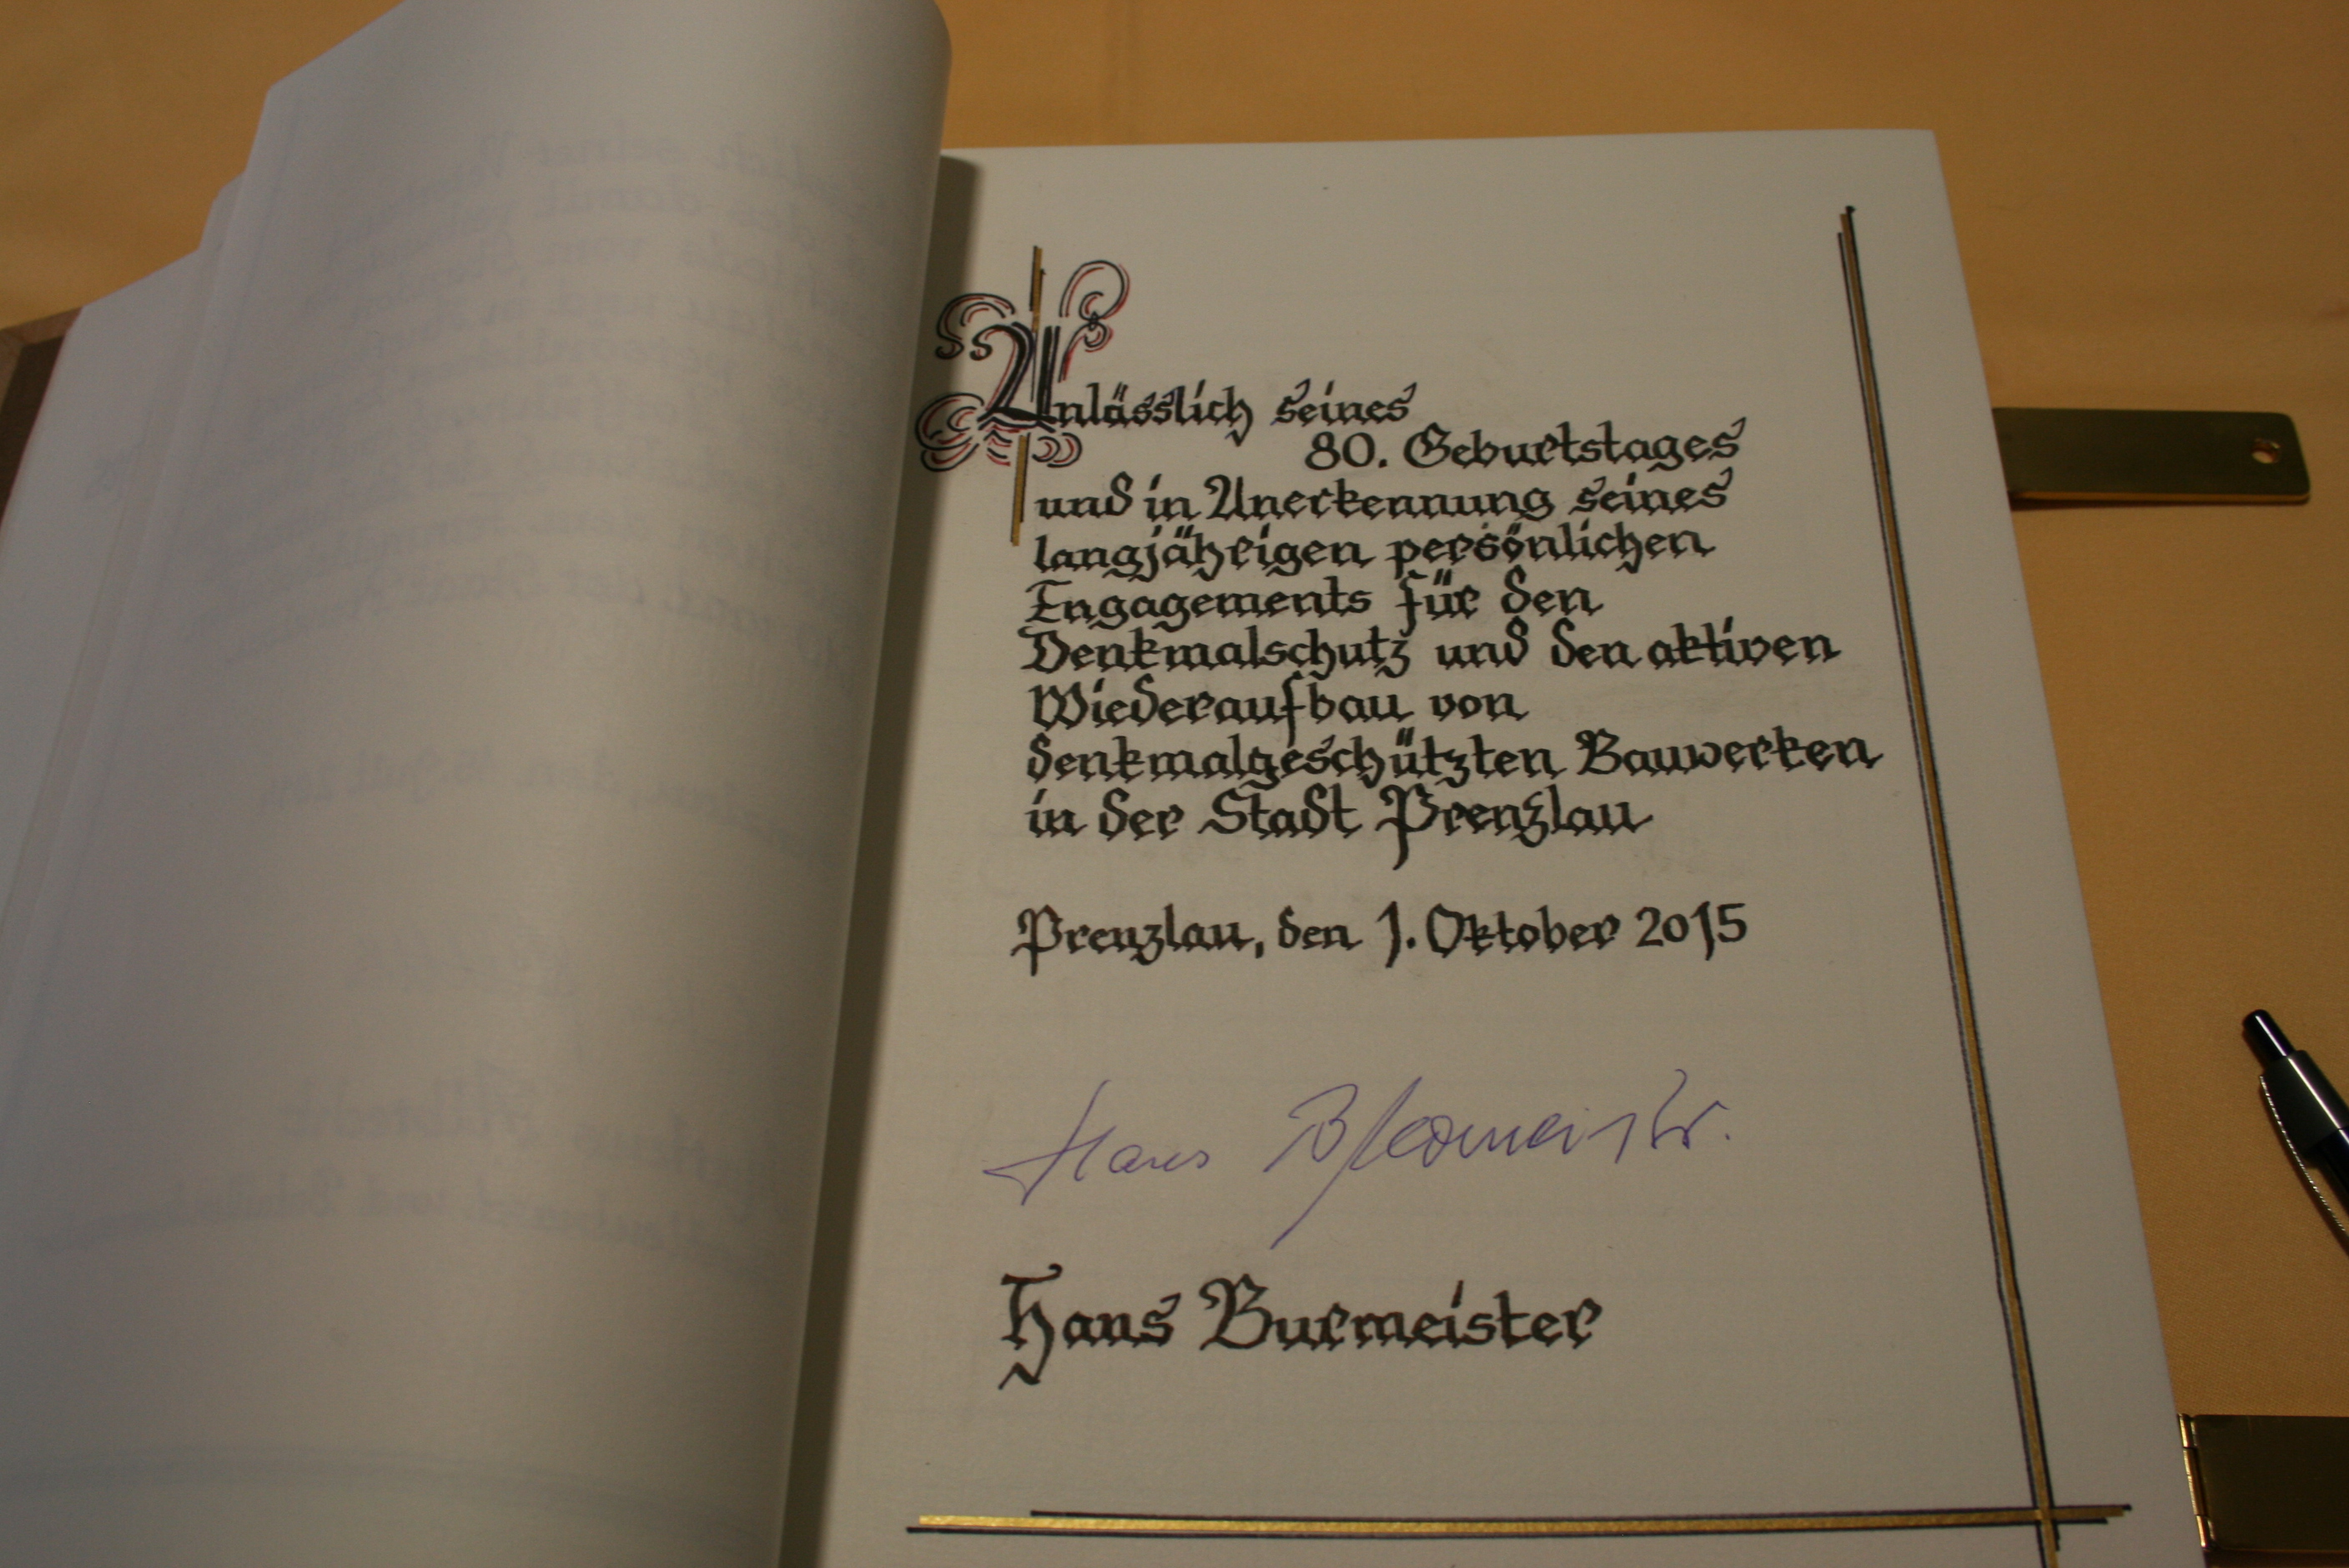 Anlässlich seines
80. Geburtstages
und in Anerkennung seines
langjährigen persönlichen
Engagements für den
Denkmalschutz und den aktiven
Wiederaufbau von
denkmalgeschützten Bauwerken
in der Stadt Prenzlau
Prenzlau, den 1. Oktober 2015
Hans Burmeister.
Hans Burmeister